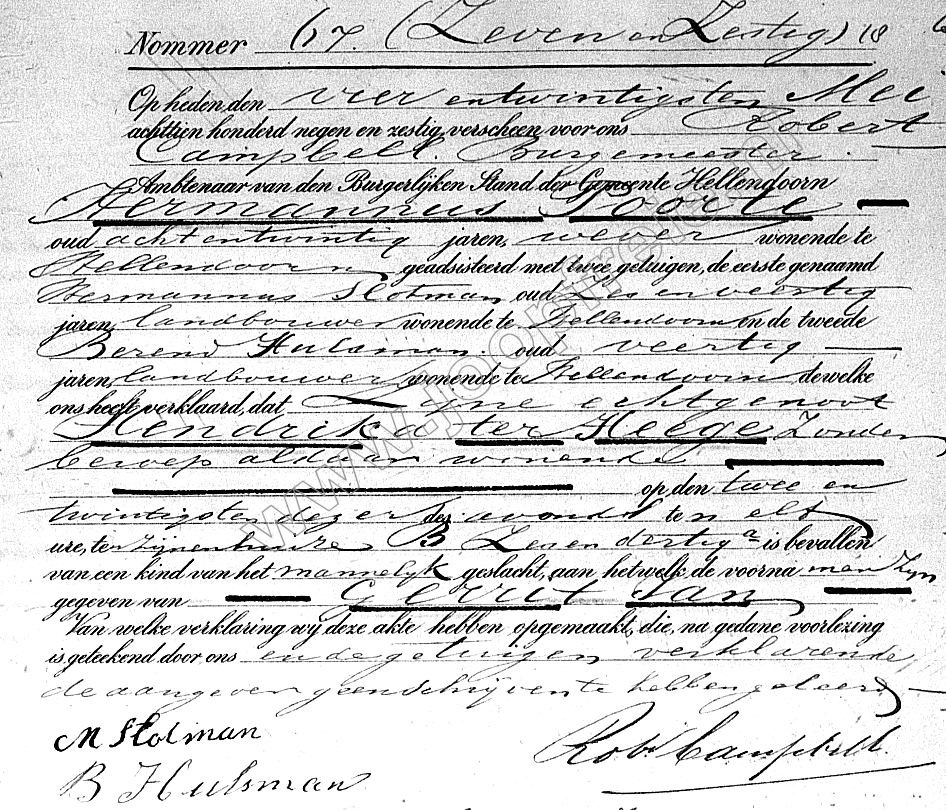 Nommer 67. (Zeven en Zestig) 18
Op heden den vier entwintigsten Mei
achttien honderd negen en zestig, verscheen voor ons Robert
Campbell. Burgemeester.
Ambtenaar van den Burgerlijken Stand der Gemeente Hellendoorn
Hermannus Poorte
oud achtentwintig jaren, wever wonende te
Hellendoorn geadsisteerd met twee getuigen, de eerste genaamd
Hermannus Slotman oud zes en veertig
jaren, landbouwer wonende te Hellendoorn en de tweede
Berend Hulsman. oud veertig
jaren, landbouwer wonende te Hellendoorn, dewelke
ons heeft verklaard, dat Zijne echtgenoot
Hendrika ter Heege Zonder
beroep aldaar wonende
op den twee en
twintigsten dezer des avonds te elf
ure, ten zijnenhuize B Zeven dertig a is bevallen
van een kind van het mannelijk geslacht, aan hetwelk de voorna men Zijn
gegeven van Gerrit Jan
Van welke verklaring wij deze akte hebben opgemaakt, die, na gedane voorlezing
is geteekend door ons en de getuigen verklarende
de aangever geen schrijven te hebben geleerd
M Slotman
B Hulsman
Robt Campbell.